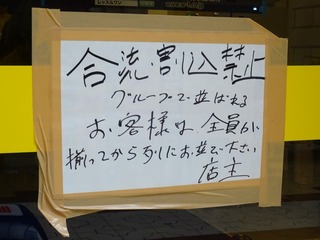 合流・割込禁止
グループで並ばれる
お客様は、全員が
揃ってから列にお並び下さい
店主